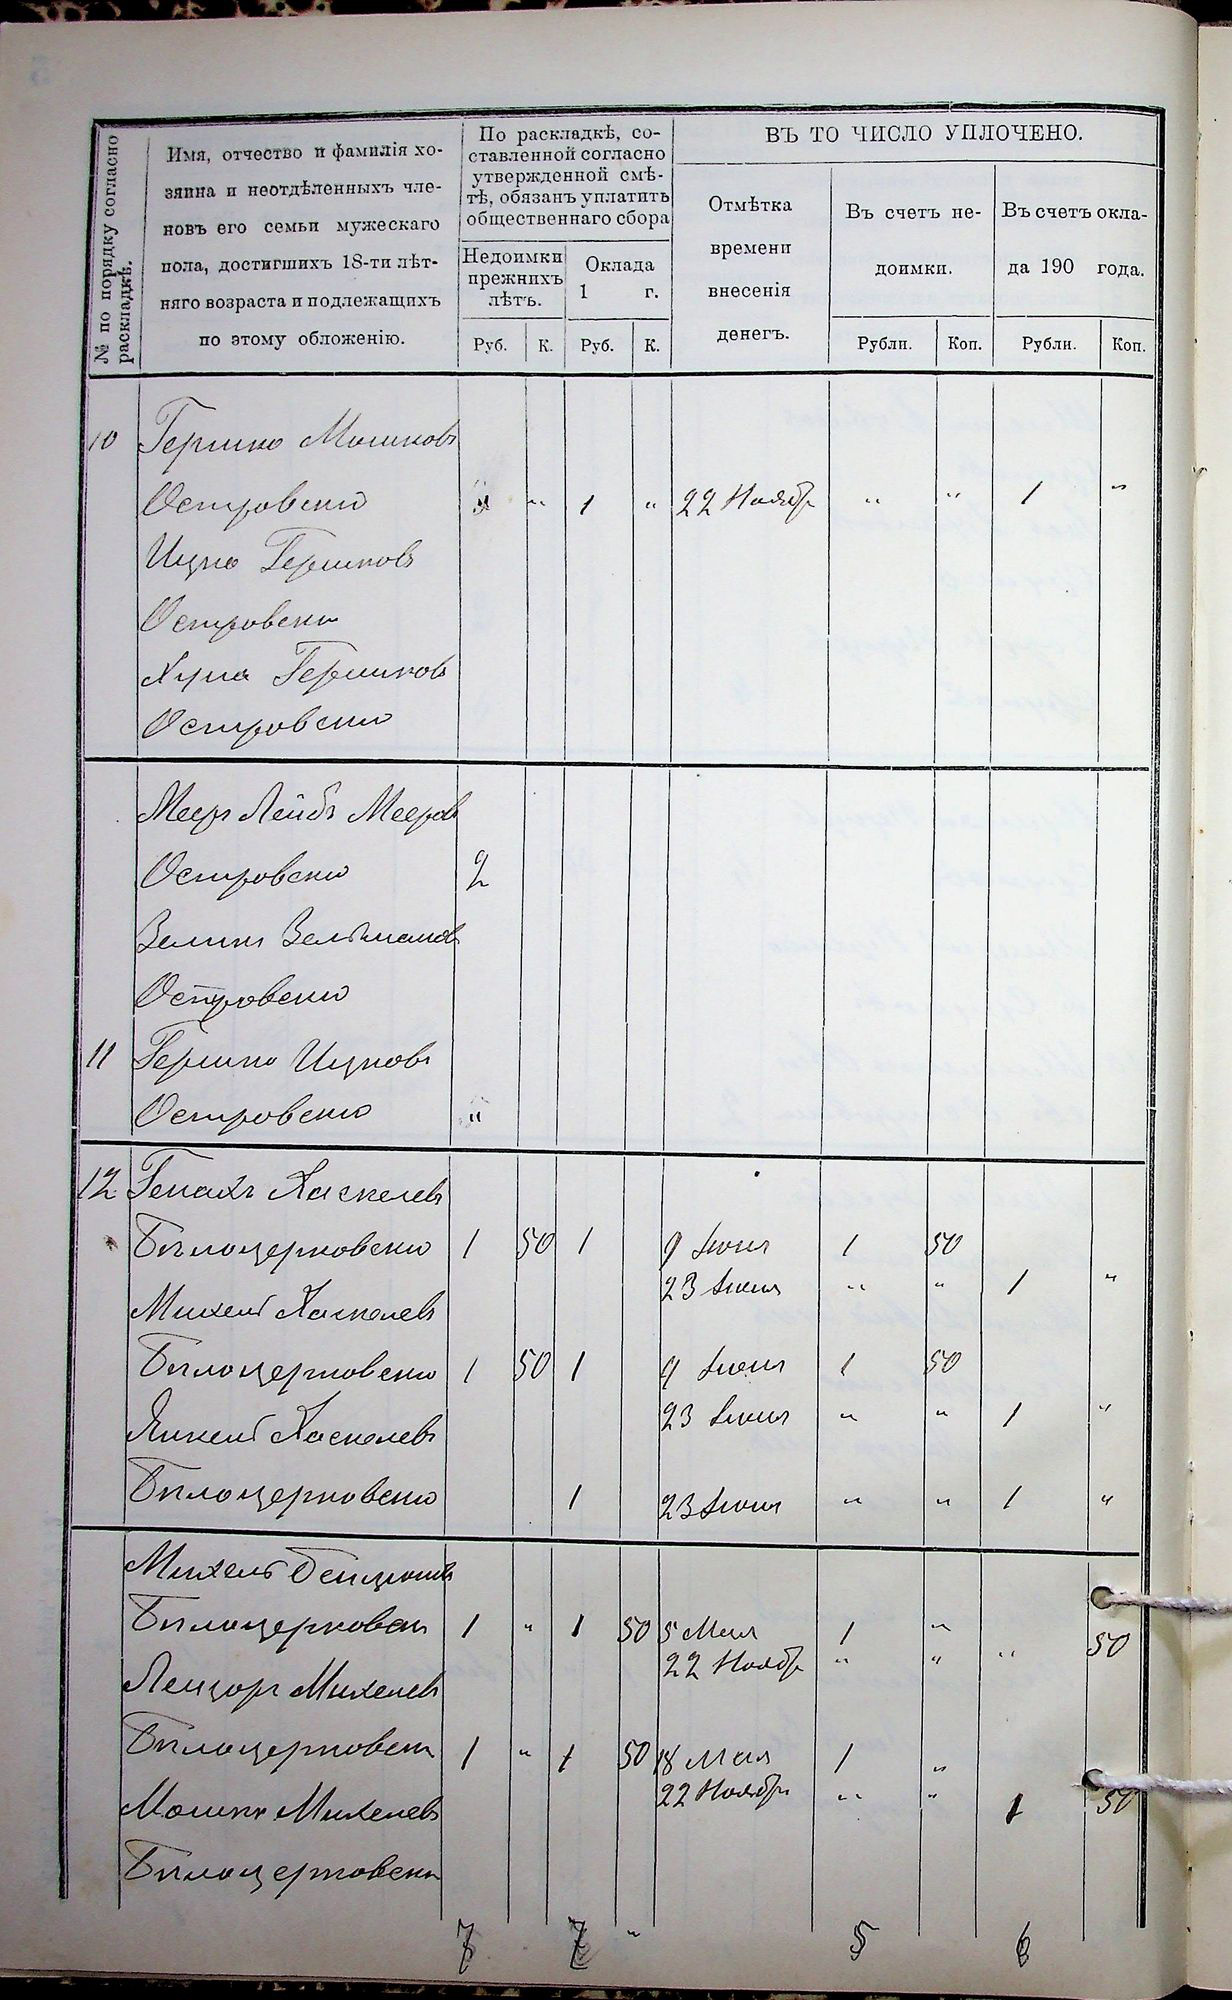 № по порядку согласно
раскладкѣ.
Имя, отчество и фамилія хо-
зяина и неотдѣленныхъ чле-
новъ его семьи мужескаго
пола, достигшихъ 18-ти лѣт-
няго возраста и подлежащихъ
по этому обложенію.
По раскладкѣ, со-
ставленной согласно
утвержденной смѣ-
тѣ, обязанъ уплатить
общественнаго сбора
Недоимки
прежнихъ
лѣтъ.
Оклада
1 г.
Руб. К. Руб. К.
ВЪ ТО ЧИСЛО УПЛОЧЕНО.
Отмѣтка
времени
внесенія
денегъ.
Въ счетъ не-
доимки.
Въ счетъ окла-
да 190 года.
Рубли. Коп. Рубли. Коп.
10 Гершко Мошковъ
Островский " " 1 " 22 Ноябр " " 1 "
Ицко Гершковъ
Островский
Хуна Гершковъ
Островский
Меер Лейбъ Мееров
Островский 2
Зельман
Островский
11 Гершко Ицковъ
Островский "
12 Генахъ Хаскелевъ
Бѣлоцерковский 1 50 1 9 Июня 1 50
23 Июня " " 1 "
Михель Хаскелевъ
Бѣлоцерковский 1 50 1 9 Июня 1 50
23 Июня " " 1 "
Янкель Хаскелевъ
Бѣлоцерковский 1 23 Июня " " 1 "
Михель Бенционовъ
Бѣлоцерковский 1 " 1 50 5 Мая 1 "
22 Ноябр " " " 50
Лейзоръ Михелевъ
Бѣлоцерковский 1 " 1 50 18 Мая 1 "
22 Ноябр " " 1 50
Мошко Михелевъ
Бѣлоцерковский
7 7 " 5 6